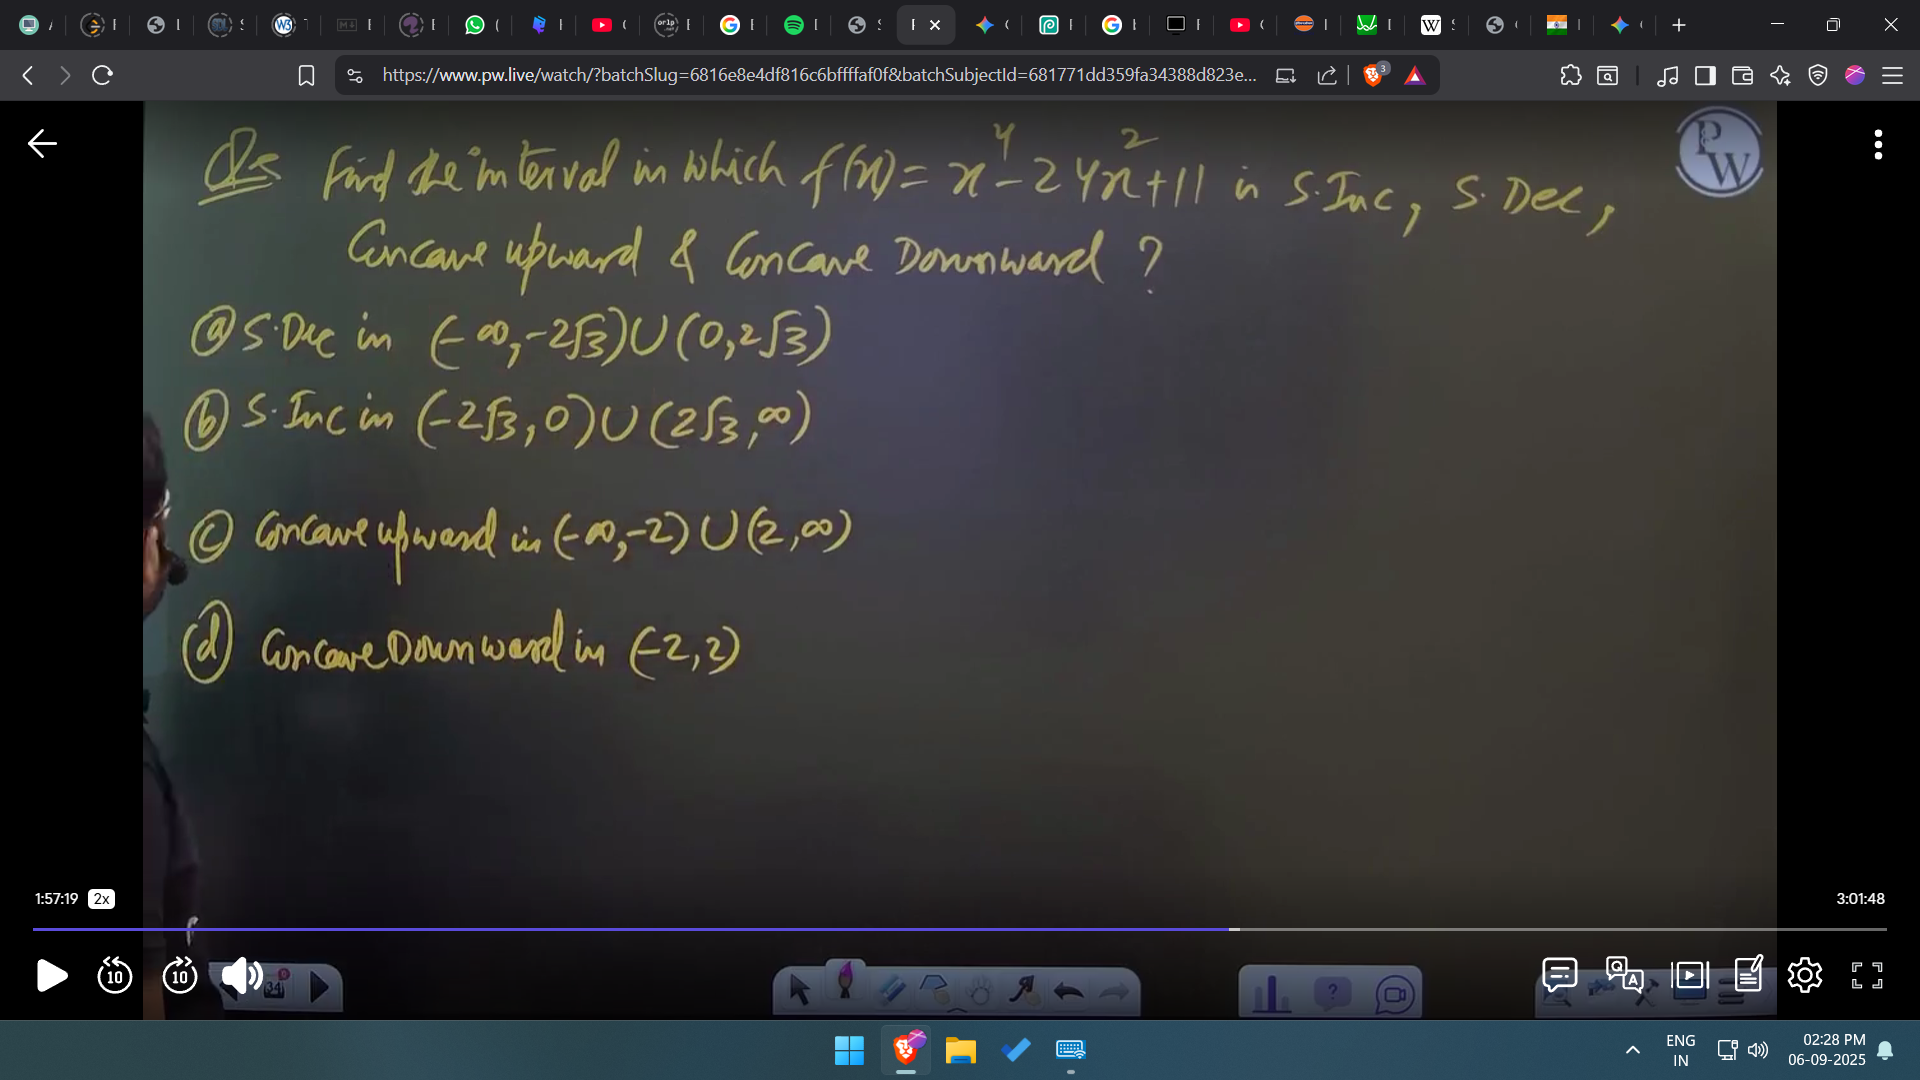 https://www.pw.live/watch/?batchSlug=6816e8e4df816c6bffffaf0f&batchSubjectId=681771dd359fa34388d823e...
3
Qs Find the interval in which f(x) = x⁴ - 24x² + 11 is S.Inc, S.Dec,
Concave upward & Concave Downward ?
PW
(a) S.Dec in (-∞, -2√3) ∪ (0, 2√3)
(b) S.Inc in (-2√3, 0) ∪ (2√3, ∞)
(c) Concave upward in (-∞, -2) ∪ (2, ∞)
(d) Concave Downward in (-2, 2)
1:57:19 2x 3:01:48
10 10
34
ENG
IN
02:28 PM
06-09-2025